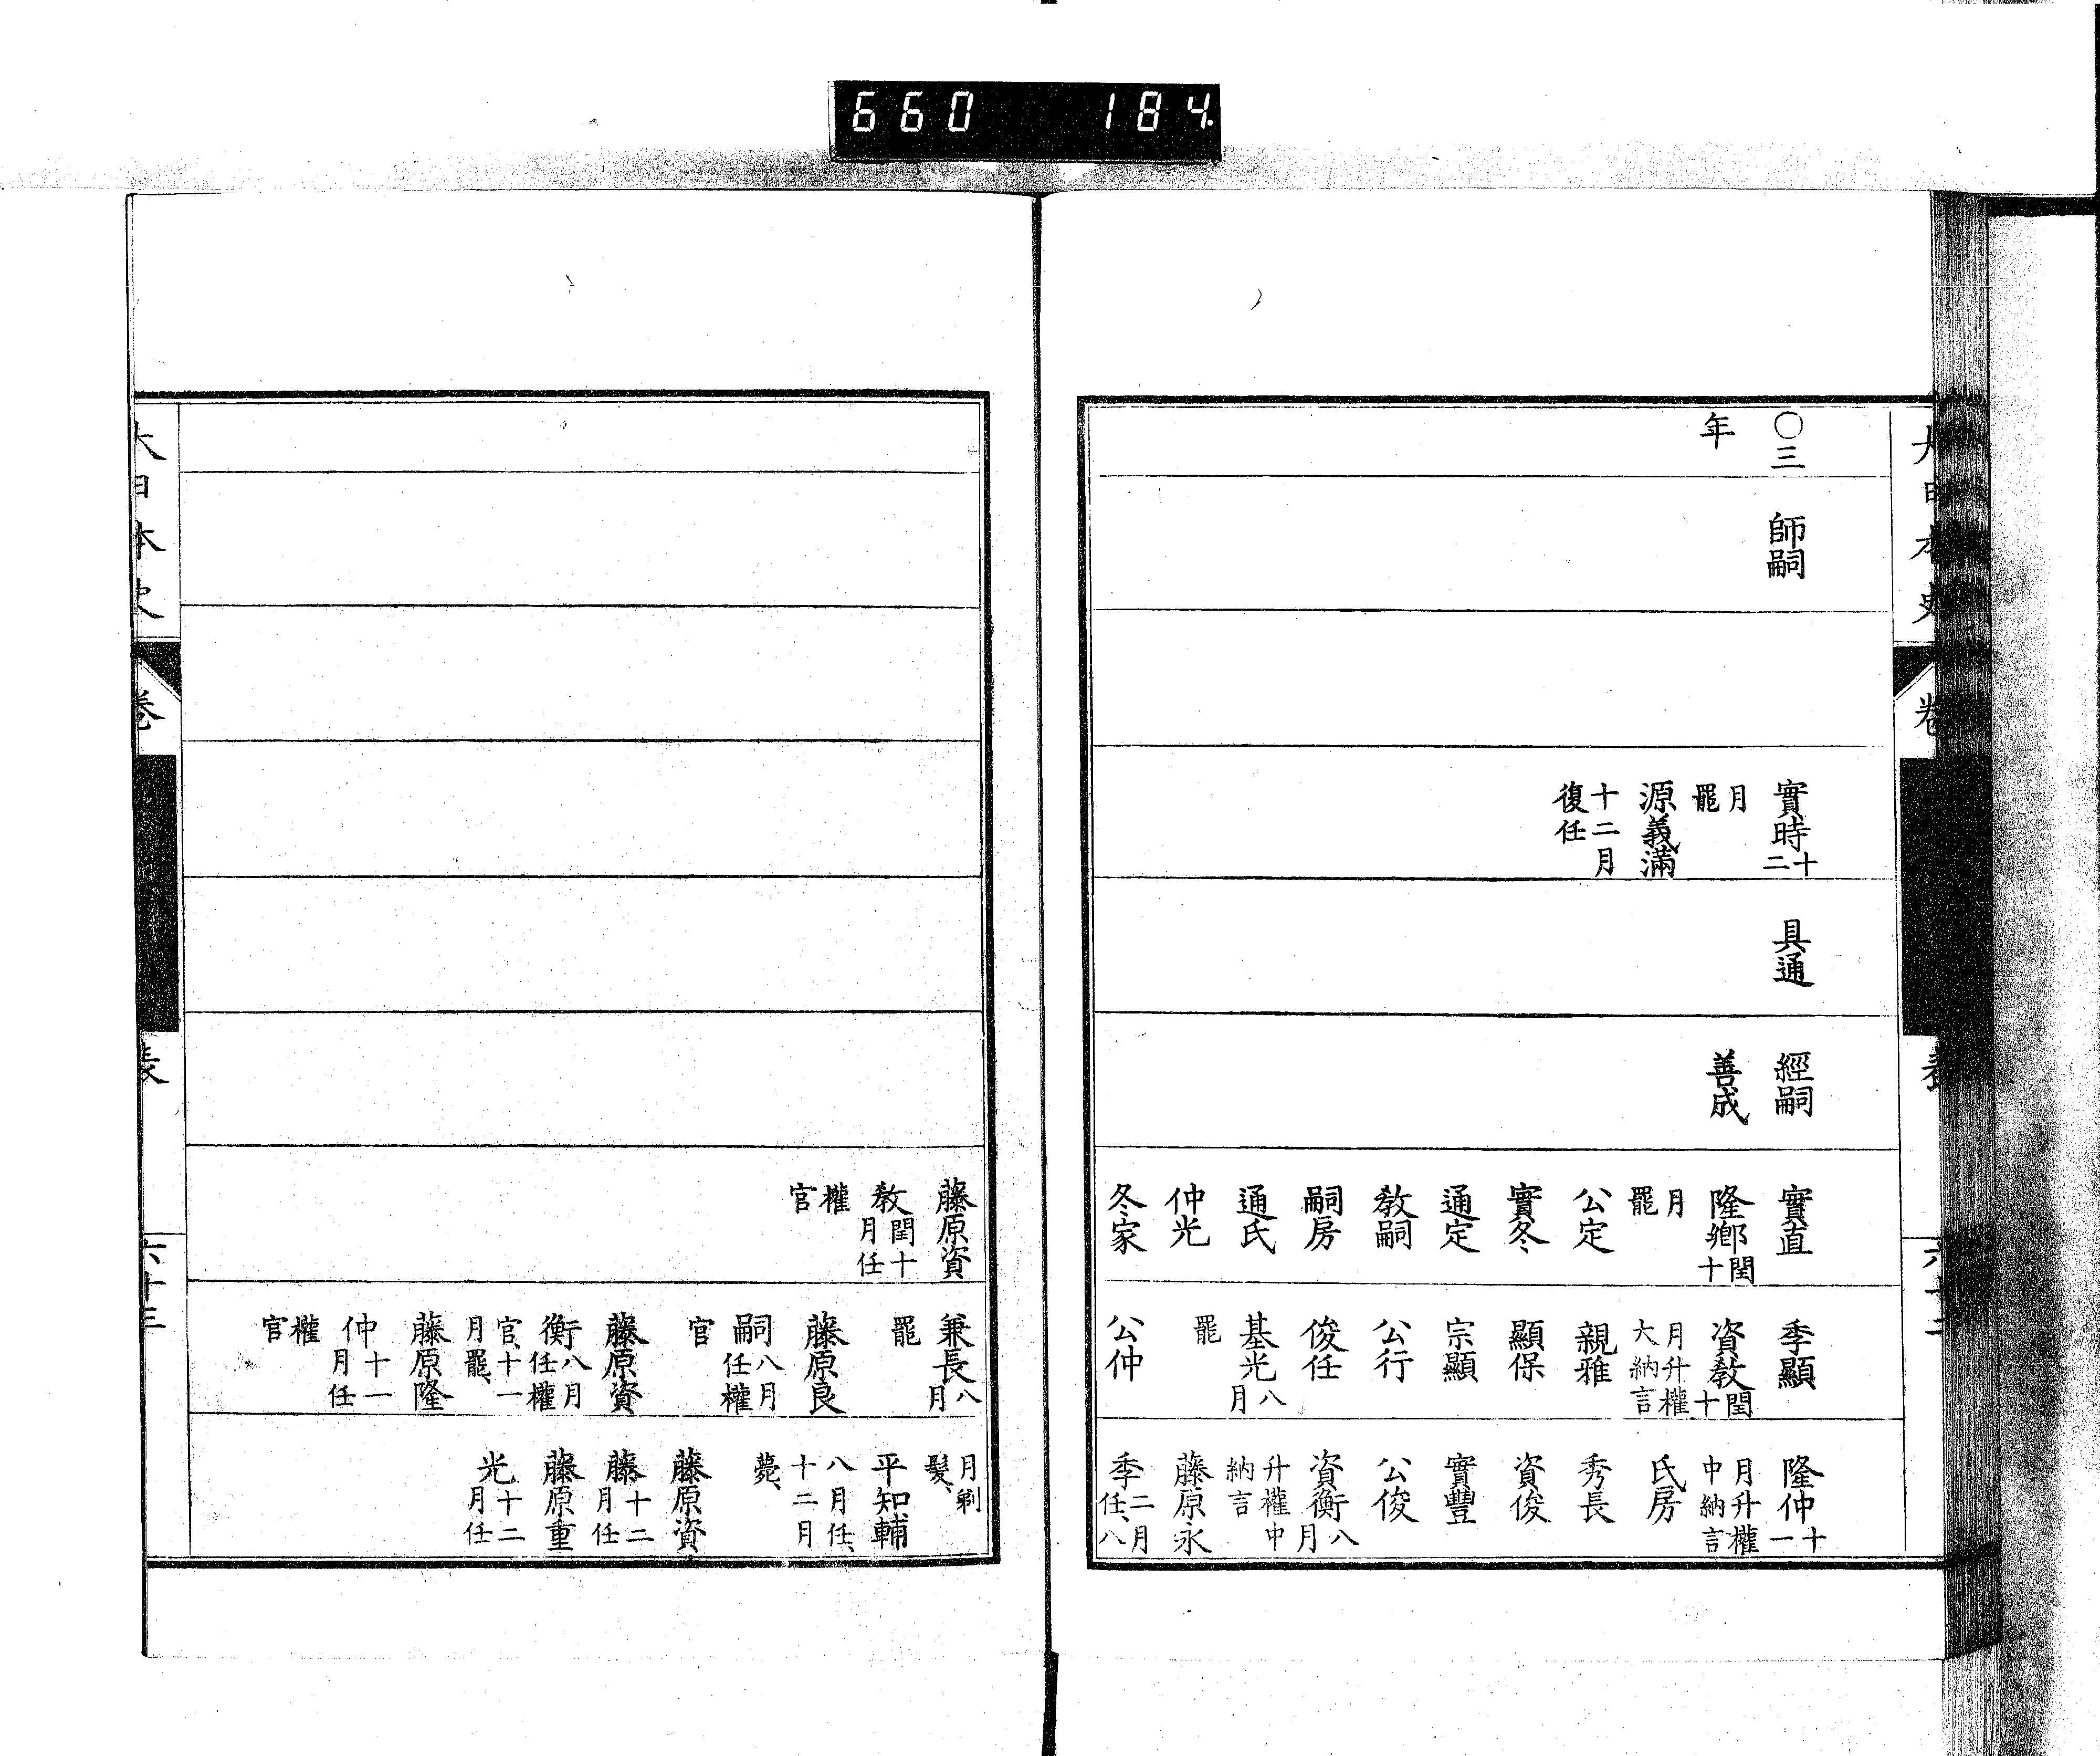 660 184
〇三
年
師嗣
實時十二
月罷
源義滿
十二月復任
具通
經嗣
善成
實直
隆鄉閏十
月罷
公定
實冬
通定
教嗣
嗣房
通氏
仲光
冬家
季顯
資教閏十
月升權大納言
親雅
顯保
宗顯
公行
俊任
基光八月
罷
公仲
隆仲十一
月升權中納言
氏房
秀長
資俊
實豐
公俊
資衡八月
升權中納言
藤原永
季二月任、八
大日本史
卷
表
藤原資
教閏十月任
權官
兼長八月
罷
藤原良
嗣八月任權
官
藤原資
衡八月任權
官、十一月罷、
藤原隆
仲十一月任
權官
月剃髮、
平知輔
八月任、十二月
薨、
藤原資
藤十二月任
藤原重
光十二月任
大日本史
卷
表
六十三